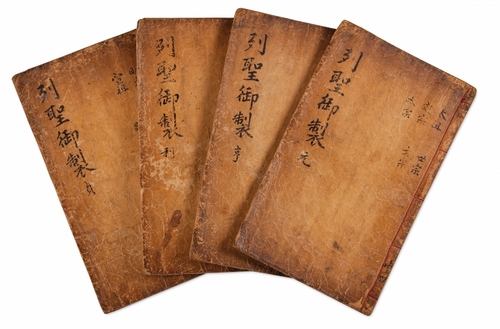 列聖御製 元
太祖
定宗
太宗
世宗
文宗
列聖御製 亨
列聖御製 利
列聖御製 貞
宣祖